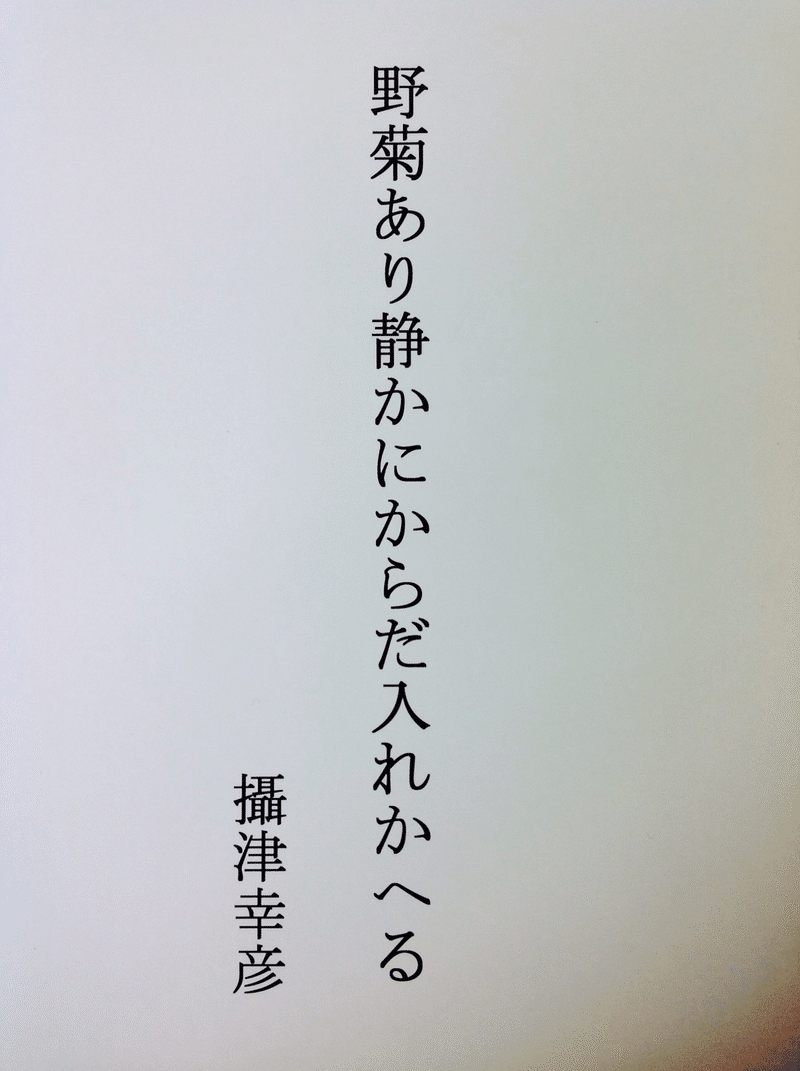 野菊あり静かにからだ入れかへる
攝津幸彦